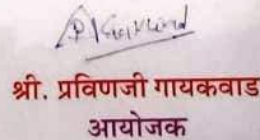 श्री. प्रविणजी गायकवाड
आयोजक